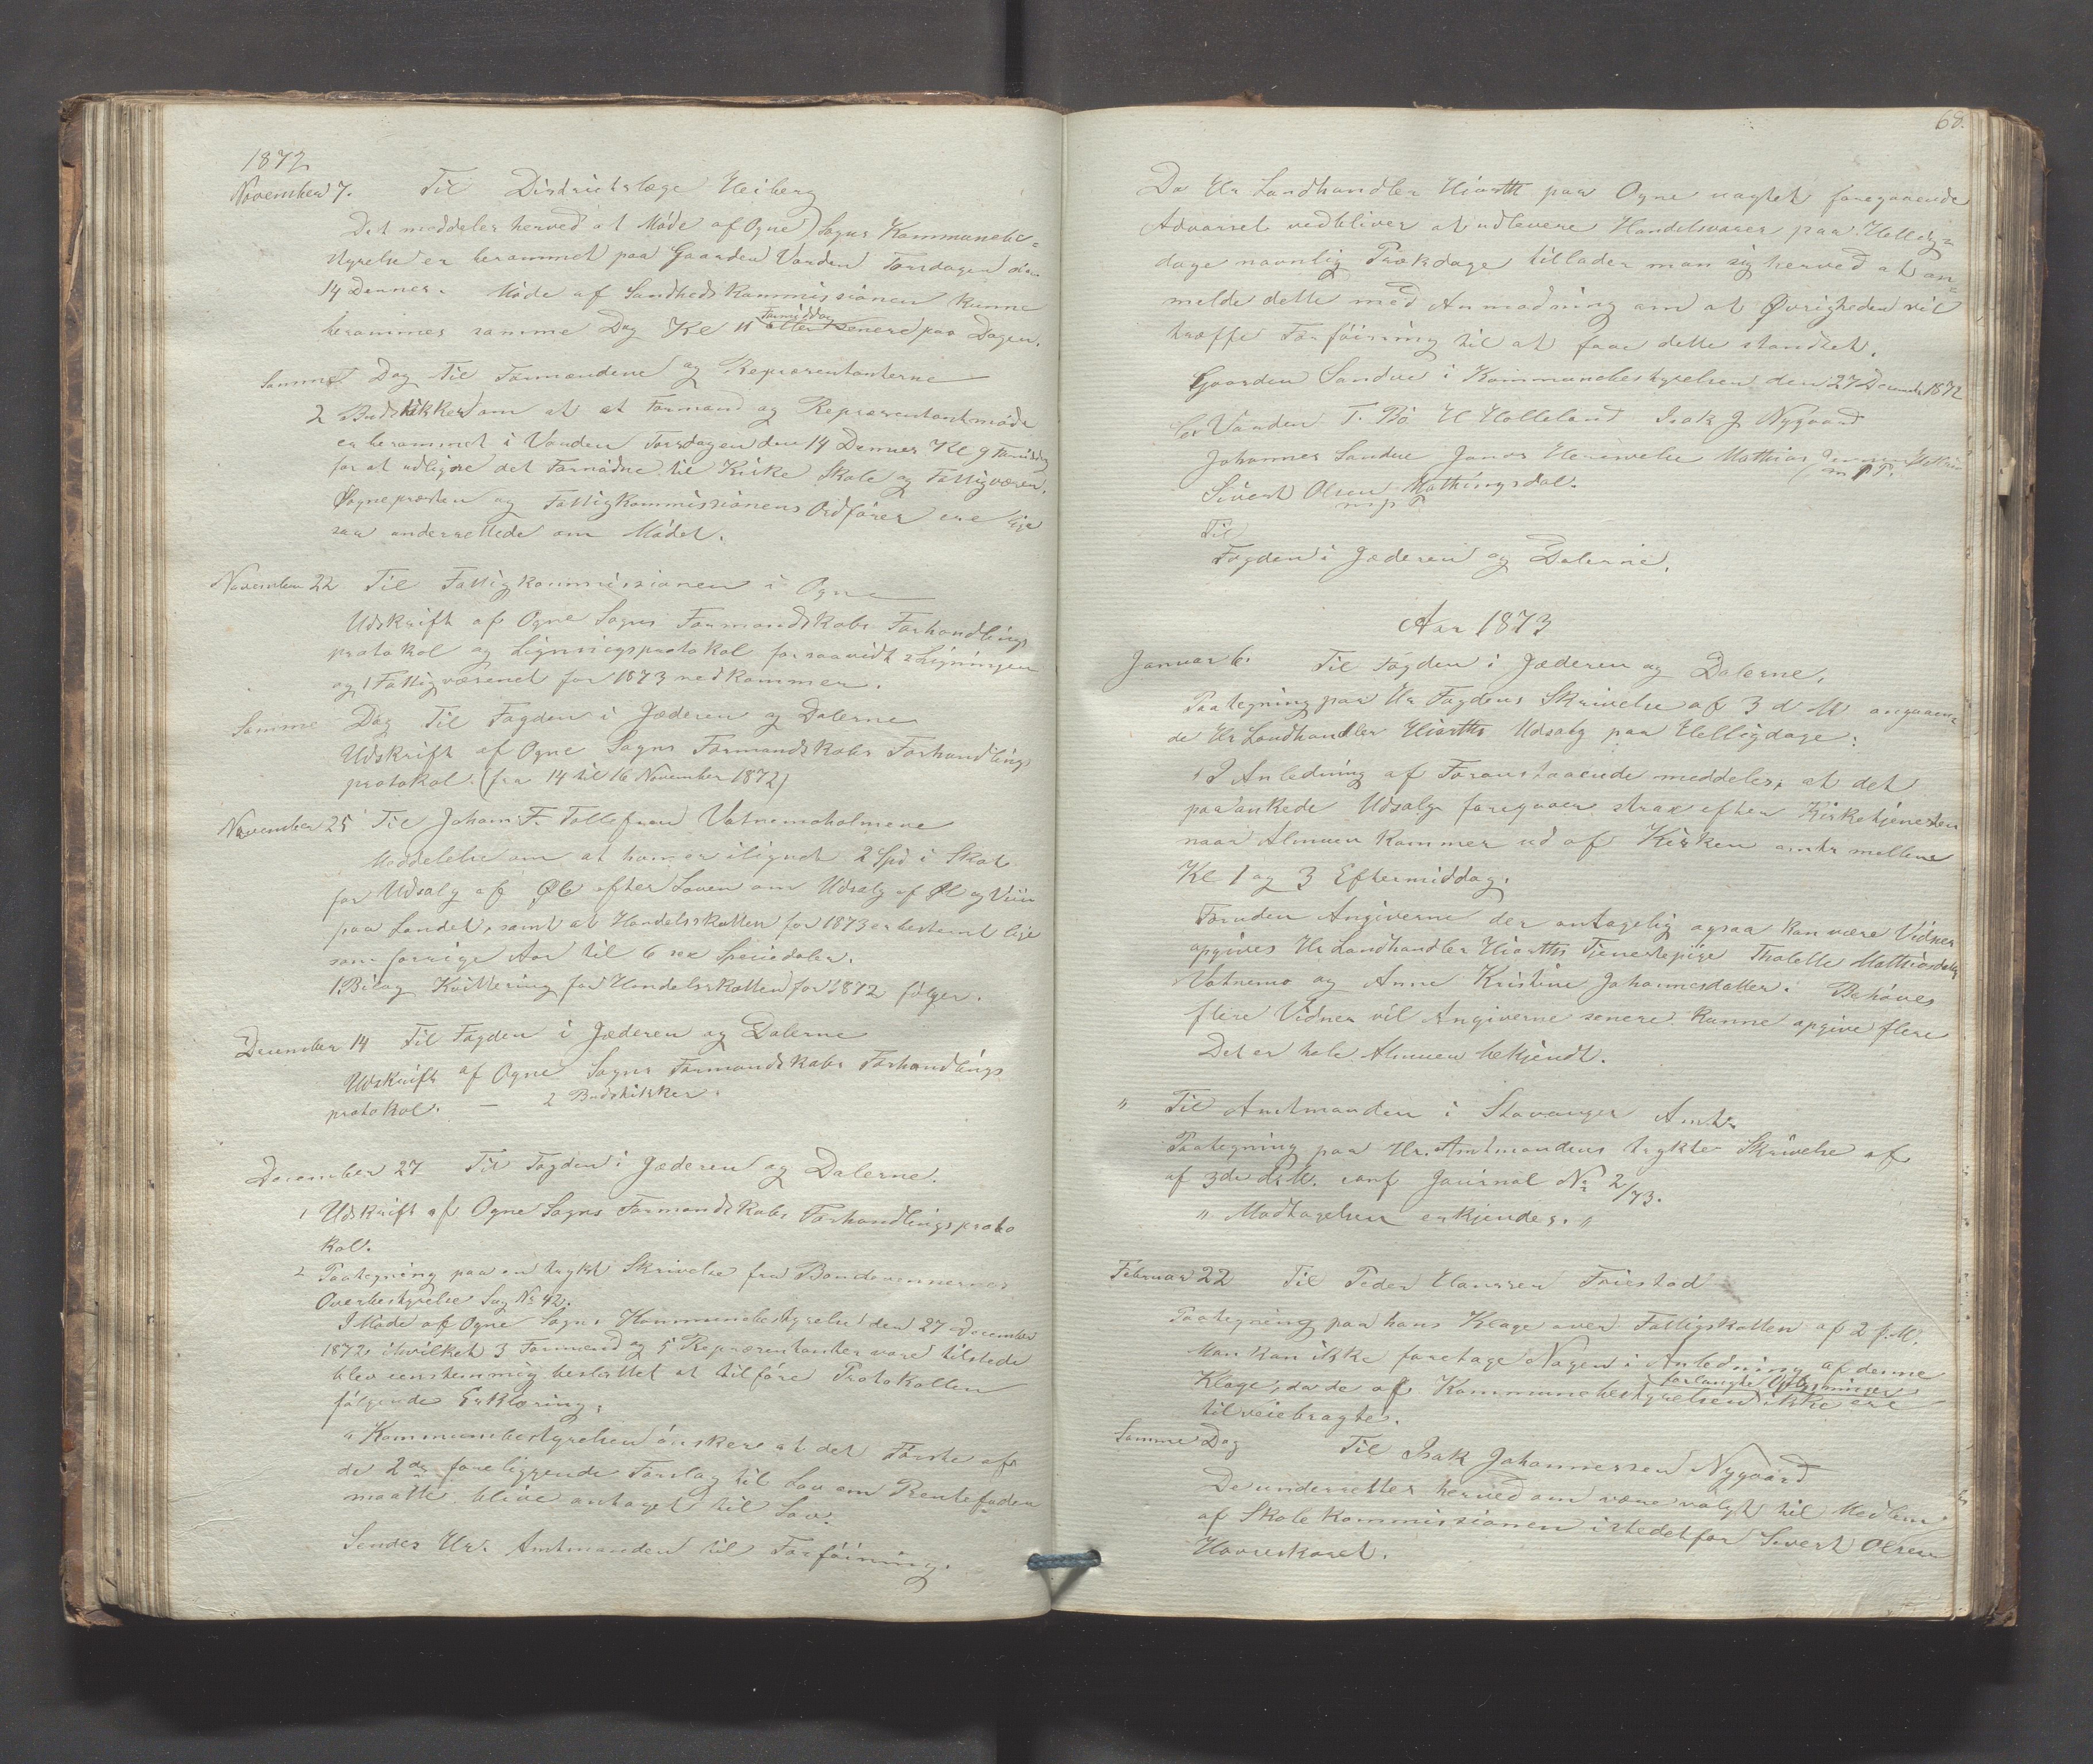 1872
November 7. Til Distriktslæge Heiberg
Det meddeles herved at Møde af Ogne Sogns Kommunebe=
styrelse er berammet paa Gaarden Varden Torsdagen den
14 Dennes. Møde af Sundhedskommissionen kunne
berammes samme Dag Kl 11 Formiddag eller senere paa Dagen.
Samme Dag Til Formændene og Repræsentanterne
2 Budstikker om at et Formand og Repræsentantmøde
er berammet i Varden Torsdagen den 14 Dennes Kl 9 Formiddag
for at udligne det Fornødne til Kirke Skole og Fattigvæsen.
Sognepresten og Fattigkommissionens Ordfører ere lige
saa underrettede om Mødet.
November 22 Til Fattigkommissionen i Ogne
Udskrift af Ogne Sogns Formandskabs Forhandlings
protokol og Ligningsprotokol forsaavidt Ligningen
og Fattigvæsenet for 1873 vedkommer.
Samme Dag Til Fogden i Jæderen og Dalerne
Udskrift af Ogne Sogns Formandskabs Forhandlings
protokol. (fra 14 til 16 November 1872)
November 25 Til Johan F. Tollefsen Vatnemoholmene
Meddelelse om at han er ilignet 2 Spd i Skat
for Udsalg af Øl efter Loven om Udsalg af Øl og Viin
paa Landet, samt at Handelsskatten for 1873 er bestemt lige
som forrige Aar til 6 sex Speciedaler.
1 Bilag Kvittering for Handelsskatten for 1872 følger.
December 14 Til Fogden i Jæderen og Dalerne
Udskrift af Ogne Sogns Formandskabs Forhandlings
protokol. — 2 Budstikker.
December 27 Til Fogden i Jæderen og Dalerne.
1 Udskrift af Ogne Sogns Formandskabs Forhandlingsproto
kol.
2 Paategning paa en trykt Skrivelse fra Bondevennernes
Overbestyrelse Sag No 42.
I Møde af Ogne Sogns Kommunebestyrelse den 27 December
1872 i hvilket 3 Formænd og 5 Repræsentanter vare tilstede
blev eenstemmig besluttet at tilføre Protokollen
følgende Erklæring:
"Kommunebestyrelsen ønskere at det Første af
de 2de foreliggende Forslag til Lov om Rentefoden
maatte blive antaget til Lov.
Sendes Hr. Amtmanden til Forføining.
68.
Da Hr Landhandler Hiorth paa Ogne uagtet foregaaende
Advarsel vedbliver at udlevere Handelsvarer paa Hellig=
dage navnlig Prækdage tillader man sig herved at an=
melde dette med Anmodning om at Øvrigheden vil
træffe Forføining til at faae dette standset.
Gaarden Sandve i Kommunebestyrelsen den 27 Decembr 1872
Varden T. Bø H Holleland Isak J Nygaard
Johannes Sandve Jonas Herrvelse Mathias
m p P.
Sivert Olsen Hathingsdal.
m p P
Til
Fogden i Jæderen og Dalerne.
Aar 1873
Januar 6. Til Fogden i Jæderen og Dalerne.
Paategning paa Hr Fogdens Skrivelse af 3 d M angaaen=
de Hr Landhandler Hiorths Udsalg paa Helligdage:
"I Anledning af Foranstaaende meddeles, at det
paaankede Udsalg foregaaer strax efter Kirketjenesten
naar Almuen kommer ud af Kirken omtr mellem
Kl 1 og 3 Eftermiddag.
Foruden Angiverne der antagelig ogsaa kan være Vidner
opgives Hr Landhandler Hiorths Tjenestepige Tholette Mathiasdatter
Vatnemo og Anne Kristine Johannesdatter. Behøves
flere Vidner vil Angiverne senere kunne opgive flere
Det er hele Almuen bekjendt.
" Til Amtmanden i Stavanger Amt
Paategning paa Hr. Amtmandens trykte Skrivelse af
af 3de ds M. conf Journal No 2/73.
" Modtagelsen erkjendes. "
Februar 22 Til Peder Hanssen Friestad
Paategning paa hans Klage over Fattigskatten af 2 f. M.
Man kan ikke foretage Nogen i Anledning af denne
Klage, da de af Kommunebestyrelsen forlangte Oplysninger ikke ere
tilveiebragte.
Samme Dag Til Isak Johannessen Nygaard
De underrettes herved om være valgt til Medlem
af Skolekommissionen istedetfor Sivert Olsen
Havreskaret.